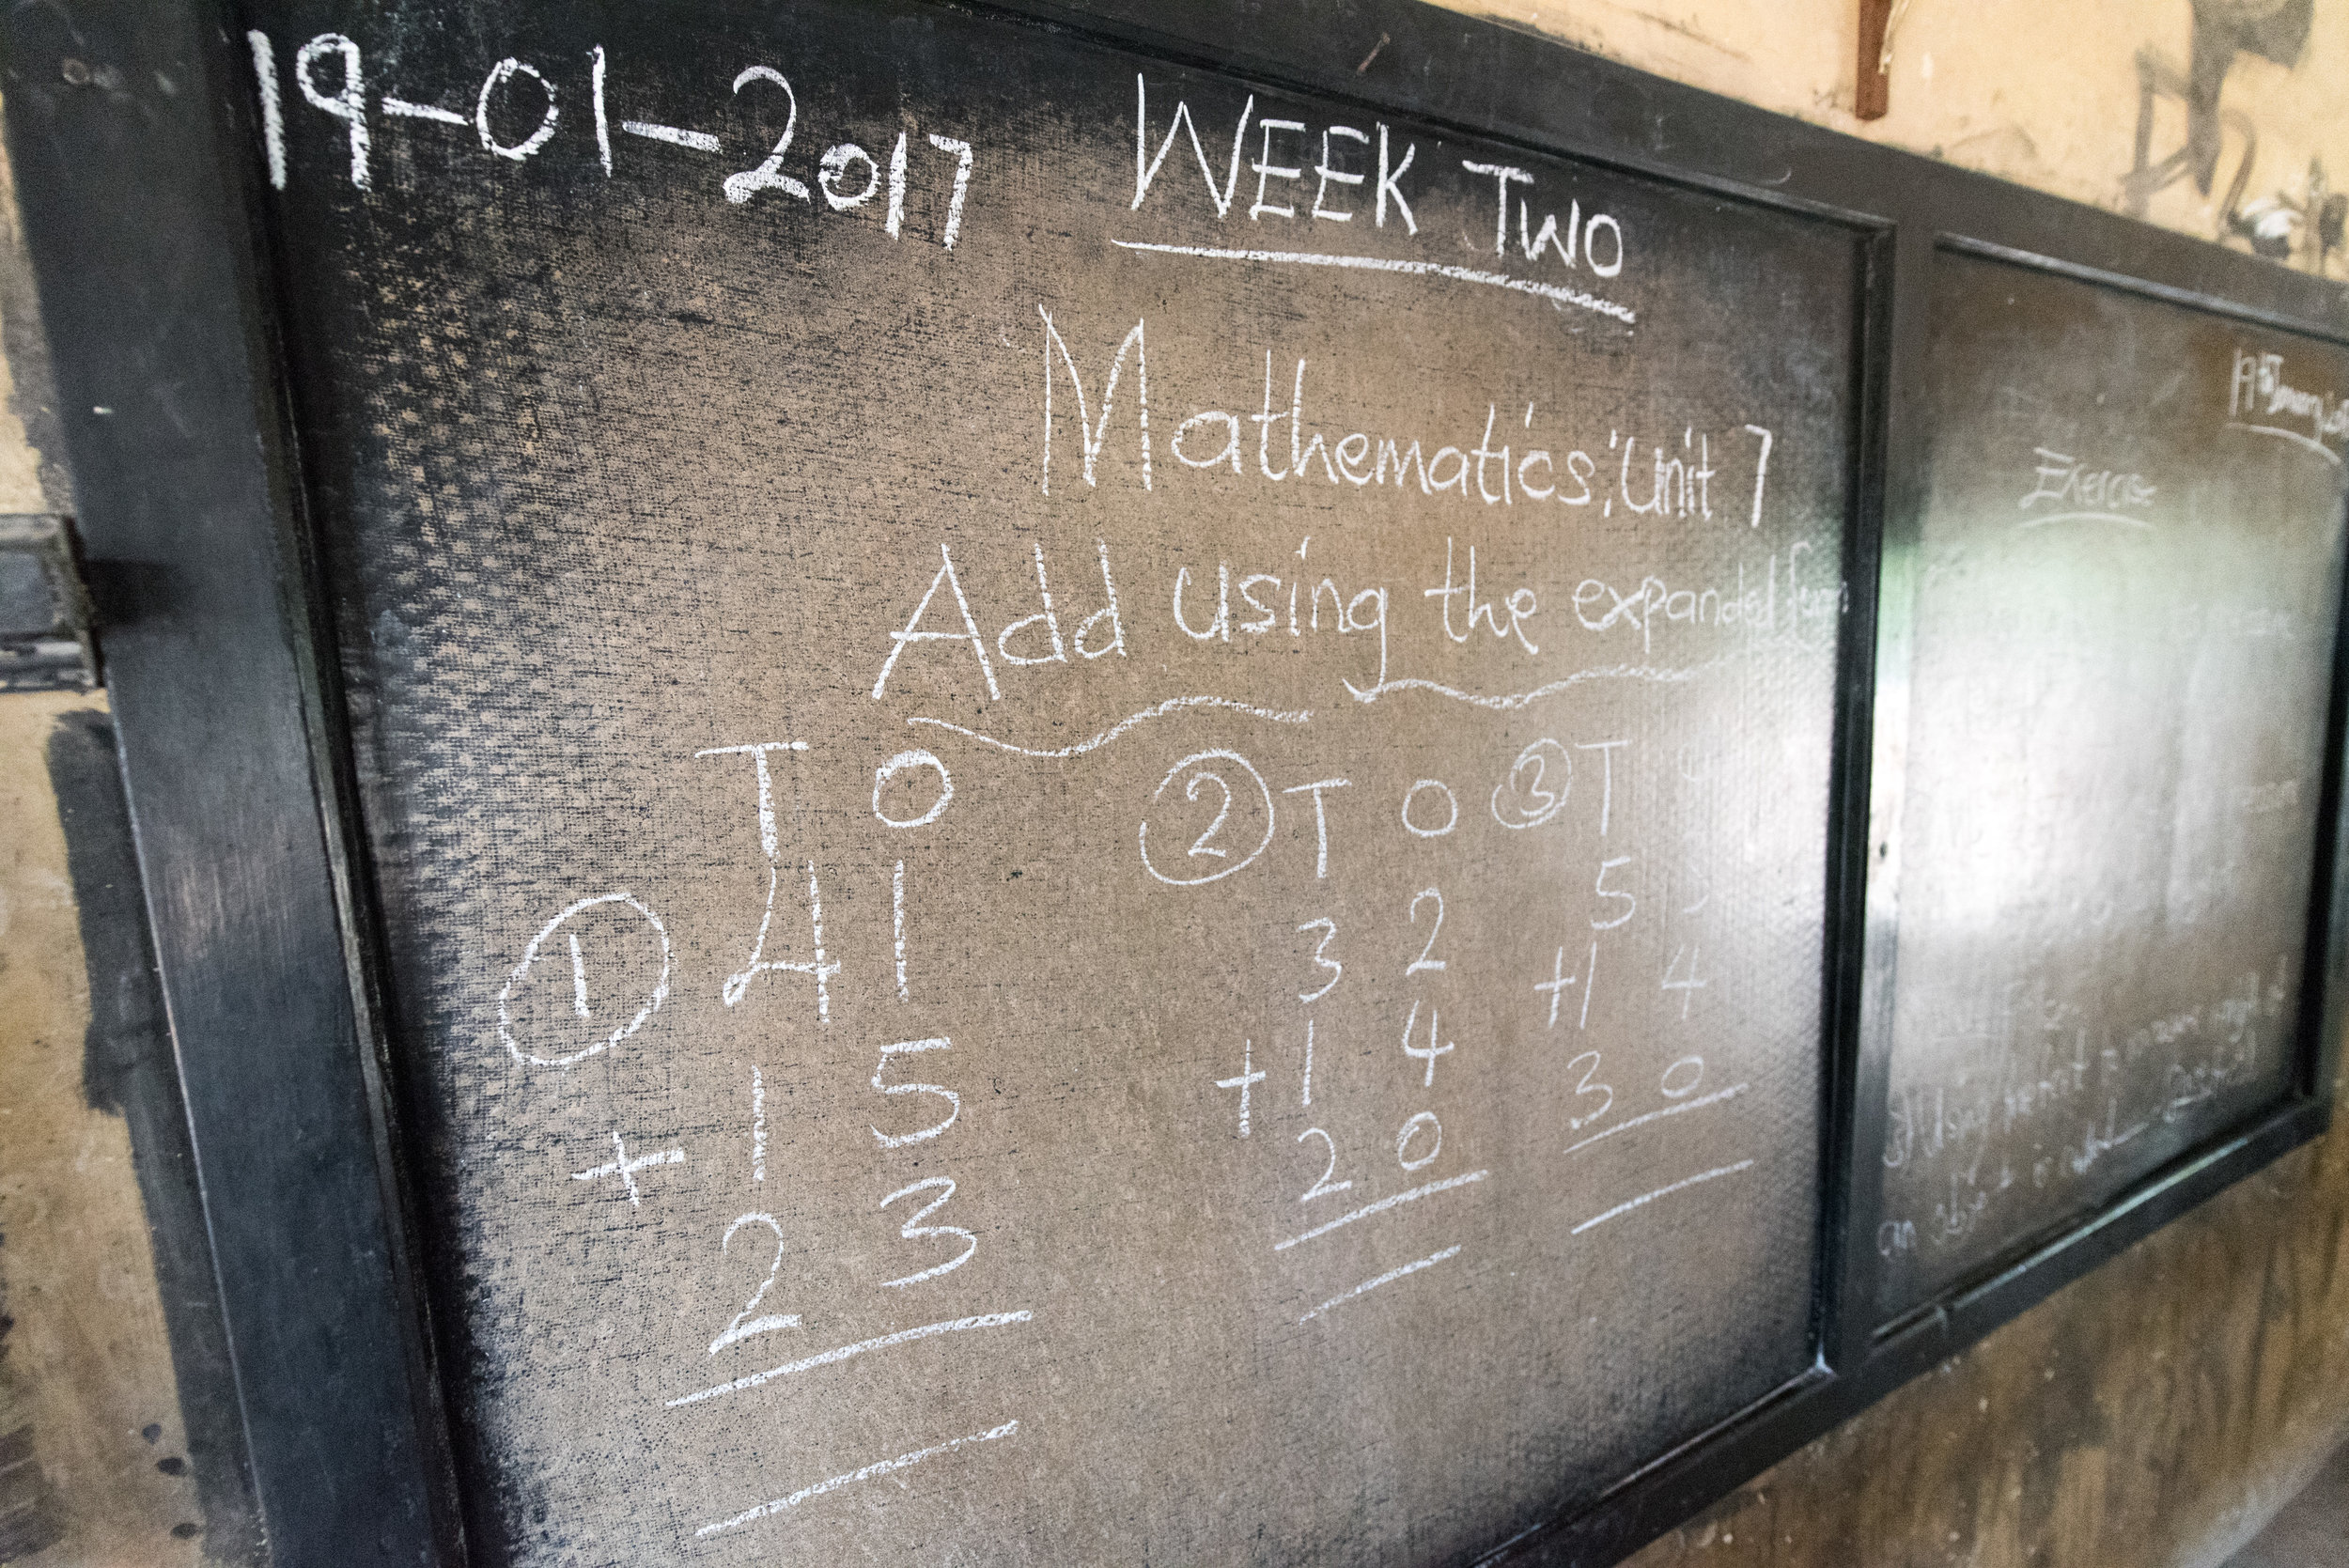 19-01-2017 WEEK TWO
Mathematics; Unit 7
Add using the expanded form
① T O
4 1
+ 1 5
2 3
② T O
3 2
+ 1 4
2 0
③ T
5
+ 1 4
3 0
19th January
Exercise
Using
can